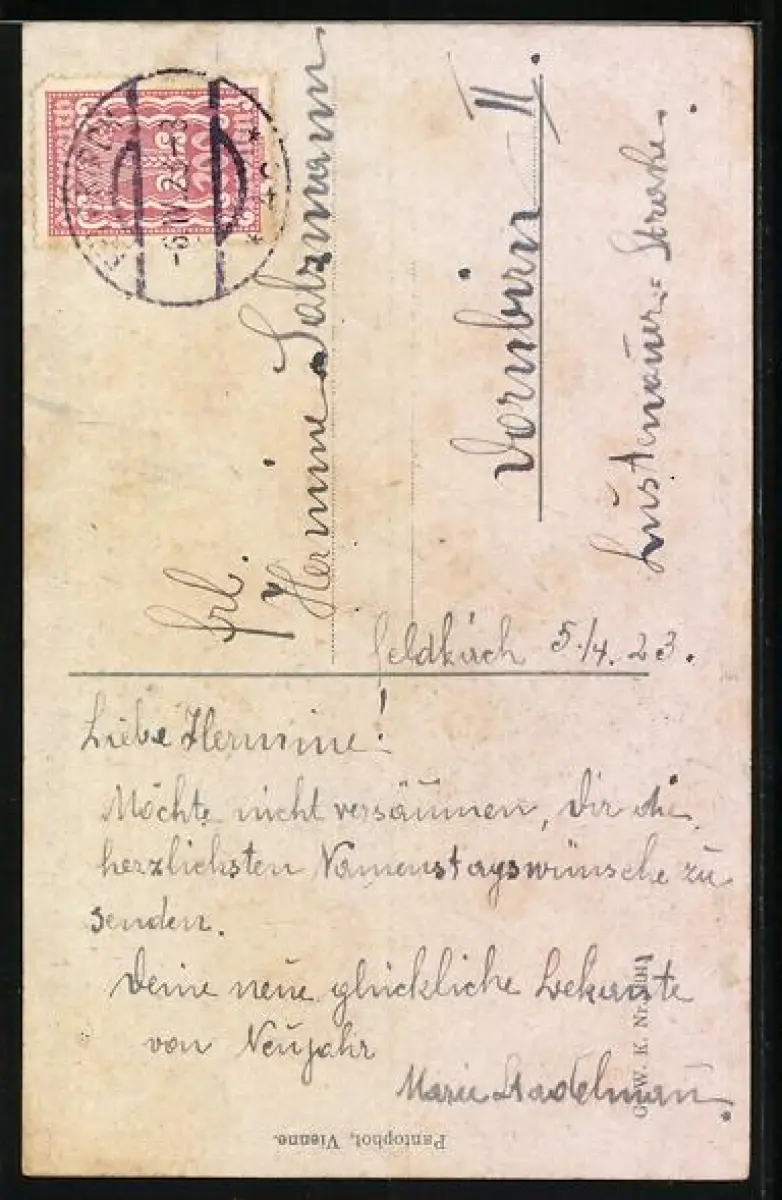 Frl.
Hermine Salzmann
Dornbirn II.
Lustenauer-Straße.
Feldkirch 5./4. 23.
Liebe Hermine!
Möchte nicht versäumen, Dir die
herzlichsten Namenstagswünsche zu
senden.
Deine neue glückliche Bekannte
von Neujahr
Marie Stadelmann.
Pantophot, Vienne.
G. W. K. Nr.
300
-6.IV.23